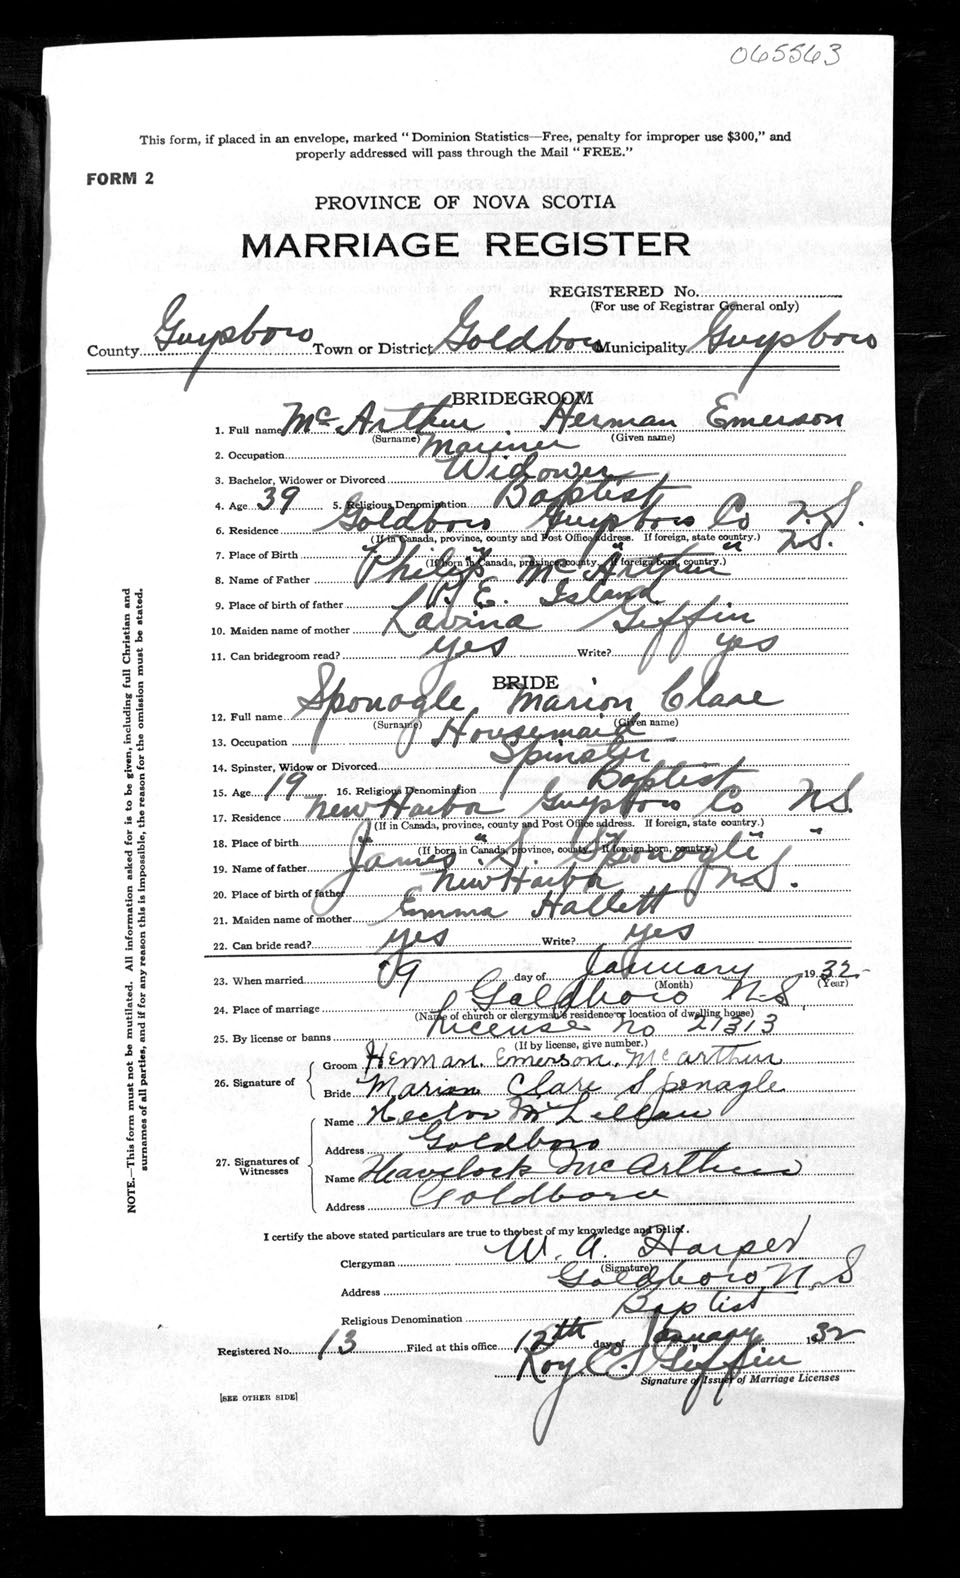 065563
This form, if placed in an envelope, marked "Dominion Statistics—Free, penalty for improper use $300," and
properly addressed will pass through the Mail "FREE."
FORM 2
PROVINCE OF NOVA SCOTIA
MARRIAGE REGISTER
REGISTERED No.
(For use of Registrar General only)
County Guysboro Town or District Goldboro Municipality Guysboro
BRIDEGROOM
1. Full name McArthur Herman Emerson
(Surname) (Given name)
2. Occupation Mariner
3. Bachelor, Widower or Divorced Widower
4. Age 39 5. Religious Denomination Baptist
6. Residence Goldboro Guysboro Co N.S.
(If in Canada, province, county and Post Office address. If foreign, state country.)
7. Place of Birth " " " N.S.
(If born in Canada, province, county. If foreign born, country.)
8. Name of Father Philip McArthur
9. Place of birth of father P.E. Island
10. Maiden name of mother Lavina Giffin
11. Can bridegroom read? yes Write? yes
BRIDE
12. Full name Sponagle Marion Clare
(Surname) (Given name)
13. Occupation Housemaid
14. Spinster, Widow or Divorced Spinster
15. Age 19 16. Religious Denomination Baptist
17. Residence New Harbor Guysboro Co N.S.
(If in Canada, province, county and Post Office address. If foreign, state country.)
18. Place of birth " " " "
(If born in Canada, province, county. If foreign born, country.)
19. Name of father James S. Sponagle
20. Place of birth of father New Harbor N.S.
21. Maiden name of mother Emma Hallett
22. Can bride read? yes Write? yes
23. When married 9 day of January 1932
(Month) (Year)
24. Place of marriage Goldboro N.S.
(Name of church or clergyman's residence or location of dwelling house)
25. By license or banns License No 27313
(If by license, give number.)
26. Signature of
Groom Herman. Emerson. McArthur
Bride Marion Clare Sponagle
27. Signatures of Witnesses
Name Hector McLellan
Address Goldboro
Name Havelock McArthur
Address Goldboro
I certify the above stated particulars are true to the best of my knowledge and belief.
Clergyman W. A. Harper
(Signature)
Address Goldboro, N.S
Religious Denomination Baptist
Registered No. 13 Filed at this office 12th day of January 1932
Roy C. S. Giffin
Signature of Issuer of Marriage Licenses
[SEE OTHER SIDE]
NOTE.—This form must not be mutilated. All information asked for is to be given, including full Christian and
surnames of all parties, and if for any reason this is impossible, the reason for the omission must be stated.